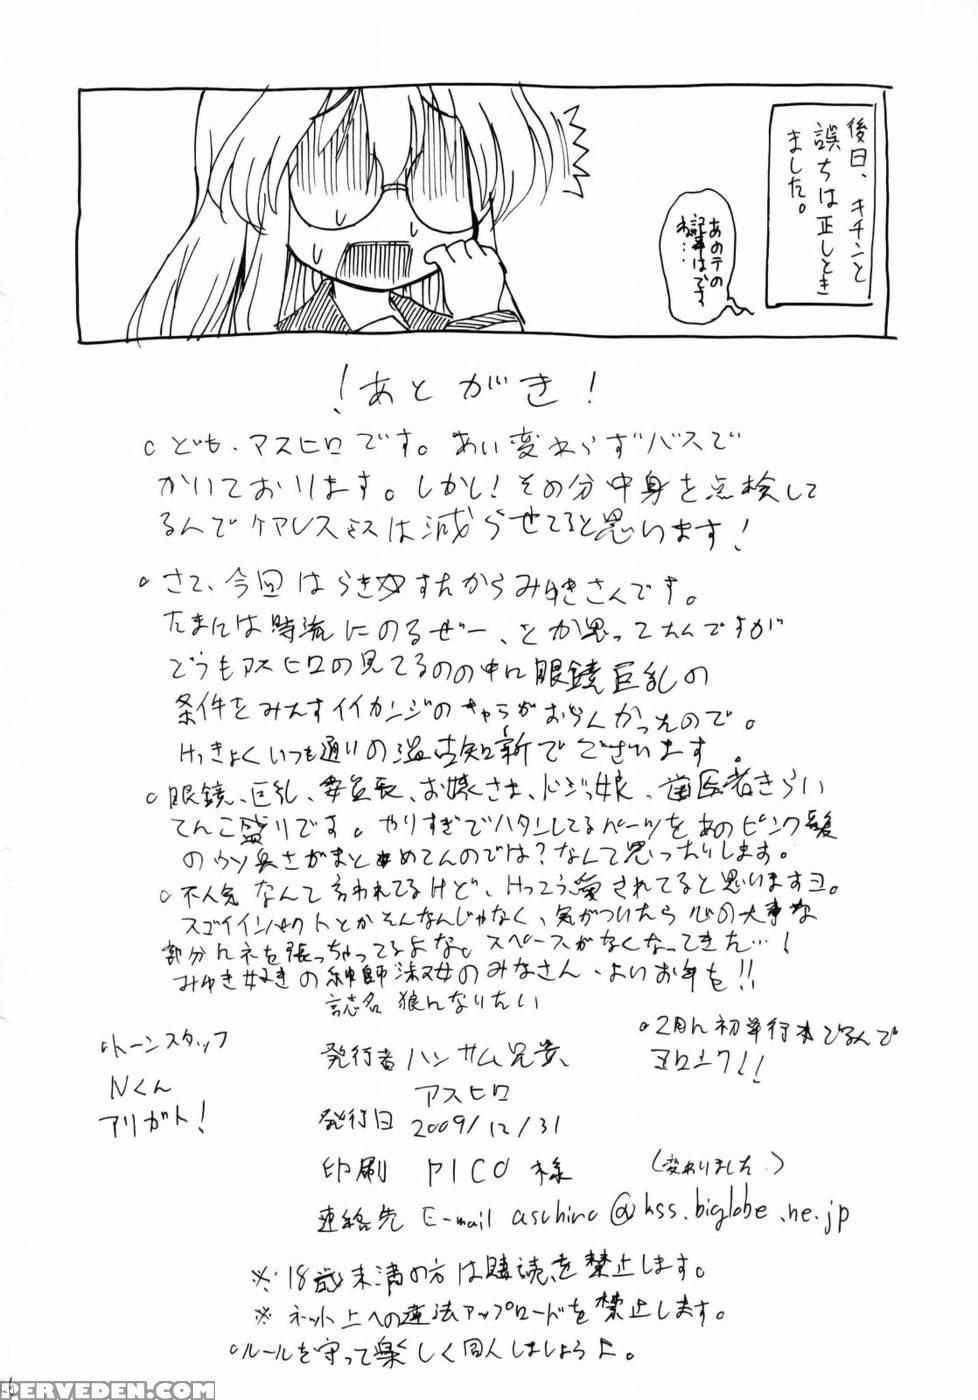 後日、キチンと
誤ちは正しとき
ました。
あのテの
記事はですね…
!あとがき!
○ども、アスヒロです。あい変わらずバスで
かいております。しかし!その分中身を点検して
るんでケアレスミスは減らせてると思います!
○さて、今回はらき☆すたからみゆきさんです。
たまには時流にのるぜー、とか思ってたんですが
どうもアスヒロの見てるのの中に眼鏡巨乳の
条件をみたすイイカンジのキャラがおらんかったので。
けっきょくいつも通りの温古知新でございます。
○眼鏡、巨乳、委員長、お嬢さま、ドジっ娘、歯医者きらい
てんこ盛りです。やりすぎでハタンしてるパーツをあのピンク髪
のウソ臭さがまとめてんのでは?なんて思ったりします。
○不人気なんて言われてるけど、けっこう愛されてると思いますヨ。
スゴイインパクトとかそんなんじゃなく、気がついたら心の大事な
部分にネを張っちゃってるよな。スペースがなくなってきた…!
みゆき好きの紳師淑女のみなさん、よいお年を!!
誌名 狼になりたい
○トーンスタッフ
Nくん
アリガト!
発行者 ハンサム兄貴、
アスヒロ
発行日 2009/12/31
印刷 PICO 様
(変わりました)
連絡先 E-mail aschiro@kss.biglobe.ne.jp
○2月に初単行本でるんで
ヨロシク!!
※18歳未満の方は購読を禁止します。
※ネット上への違法アップロードを禁止します。
○ルールを守って楽しく同人しましょうよ。
PERVEDEN.COM